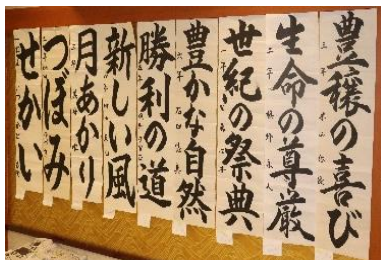 豊穣の喜び
生命の尊厳
世紀の祭典
豊かな自然
勝利の道
新しい風
月あかり
つぼみ
せかい